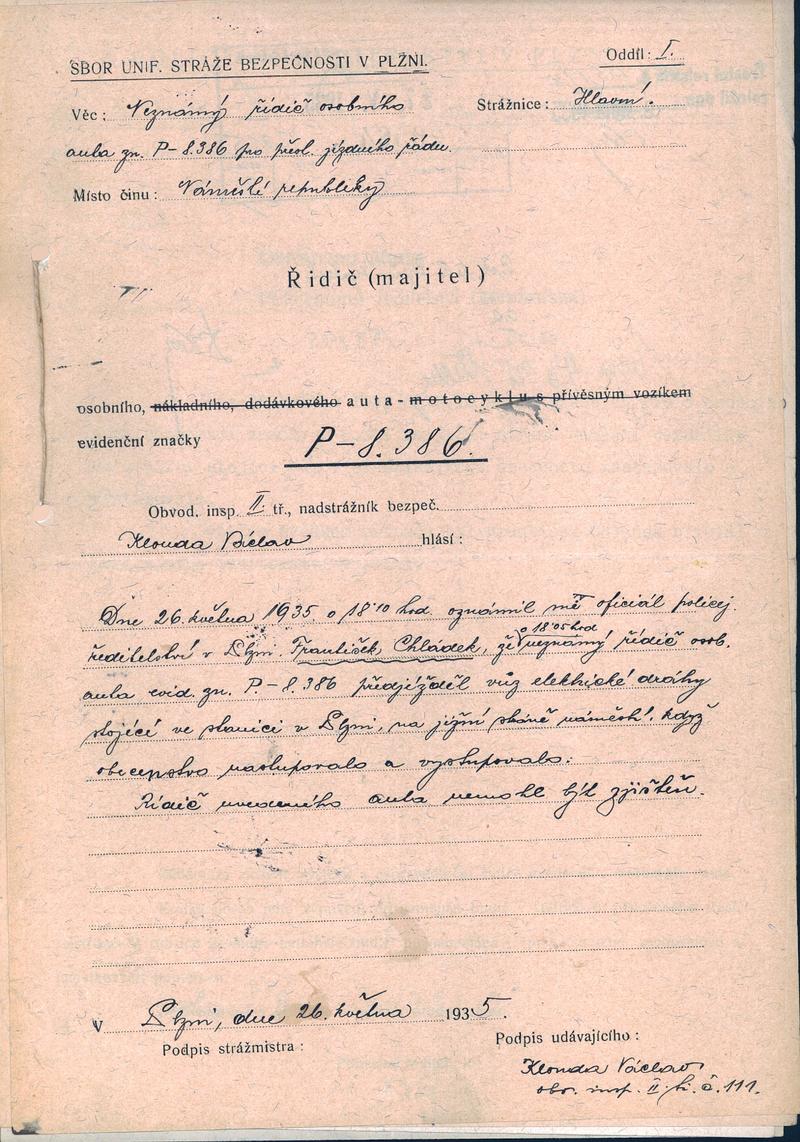 Oddíl: I.
SBOR UNIF. STRÁŽE BEZPEČNOSTI V PLZNI.
Věc: Neznámý řidič osobního
Strážnice: Hlavní.
auta zn. P-8.386 pro přest. jízdného řádu.
Místo činu: Náměstí republiky
Řidič (majitel)
osobního, nákladního, dodávkového auta - motocyklu s přívěsným vozíkem
evidenční značky P-8.386.
Obvod. insp. II. tř., nadstrážník bezpeč.
Klonda Václav hlásí:
Dne 26. května 1935 o 18'10 hod. oznámil mě oficiál policej.
o 18'05 hod
ředitelství v Plzni František Chládek, že neznámý řidič osob.
auta evid. zn. P.-8.386 předjížděl vůz elektrické dráhy
stojící ve stanici v Plzni, na jižní straně náměstí, když
obecenstvo nastupovalo a vystupovalo.
Řidič uvedeného auta nemohl být zjištěn.
V Plzni, dne 26. května 1935.
Podpis strážmistra:
Podpis udávajícího:
Klonda Václav
obv. insp. II. tř. č. 111.